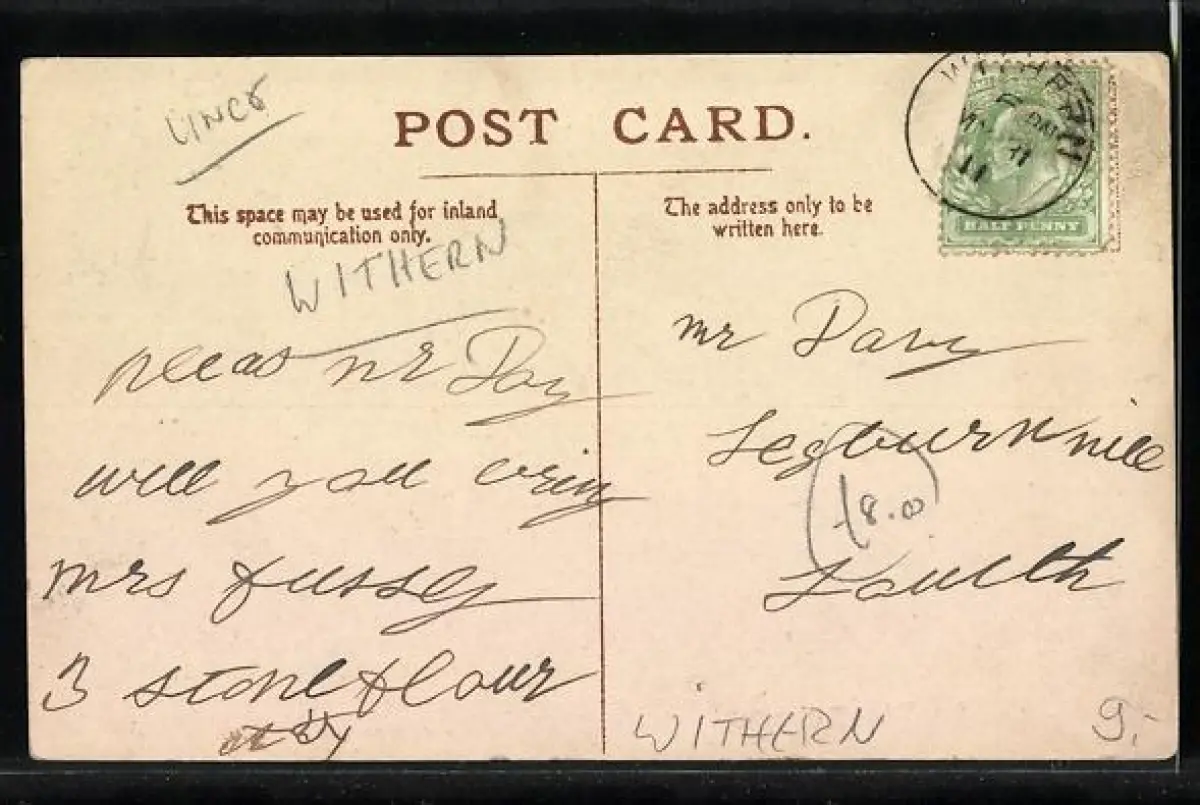 LINCS
POST CARD.
This space may be used for inland
communication only.
The address only to be
written here.
WITHERN
HALF PENNY
WITHERN
11
pleas mr Day
will you bring
mrs
3 stone flour
mr Davy
Legburn mill
Louth
18.0
WITHERN
9.-